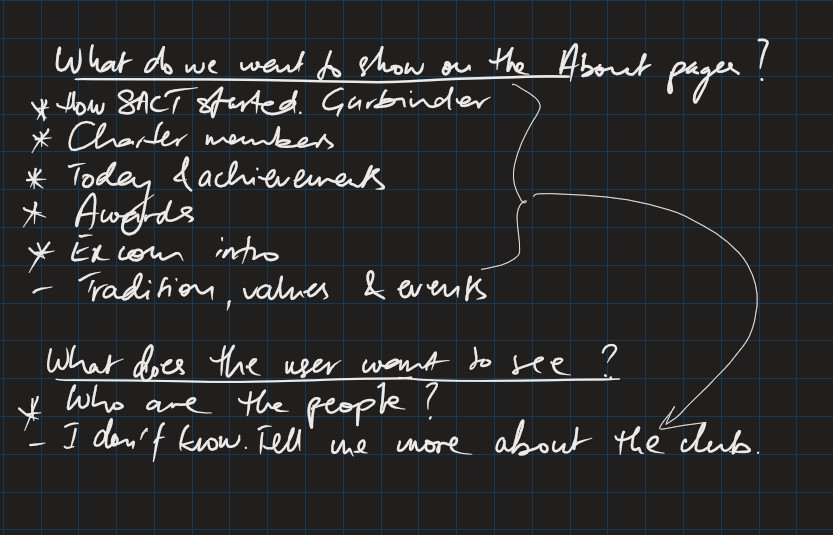 What do we want to show on the About pages?
* How SACT started. Gurbinder
* Charter members
* Today & achievements
* Awards
* Excom intro
- Tradition, values & events
What does the user want to see?
* Who are the people?
- I don't know. Tell me more about the club.